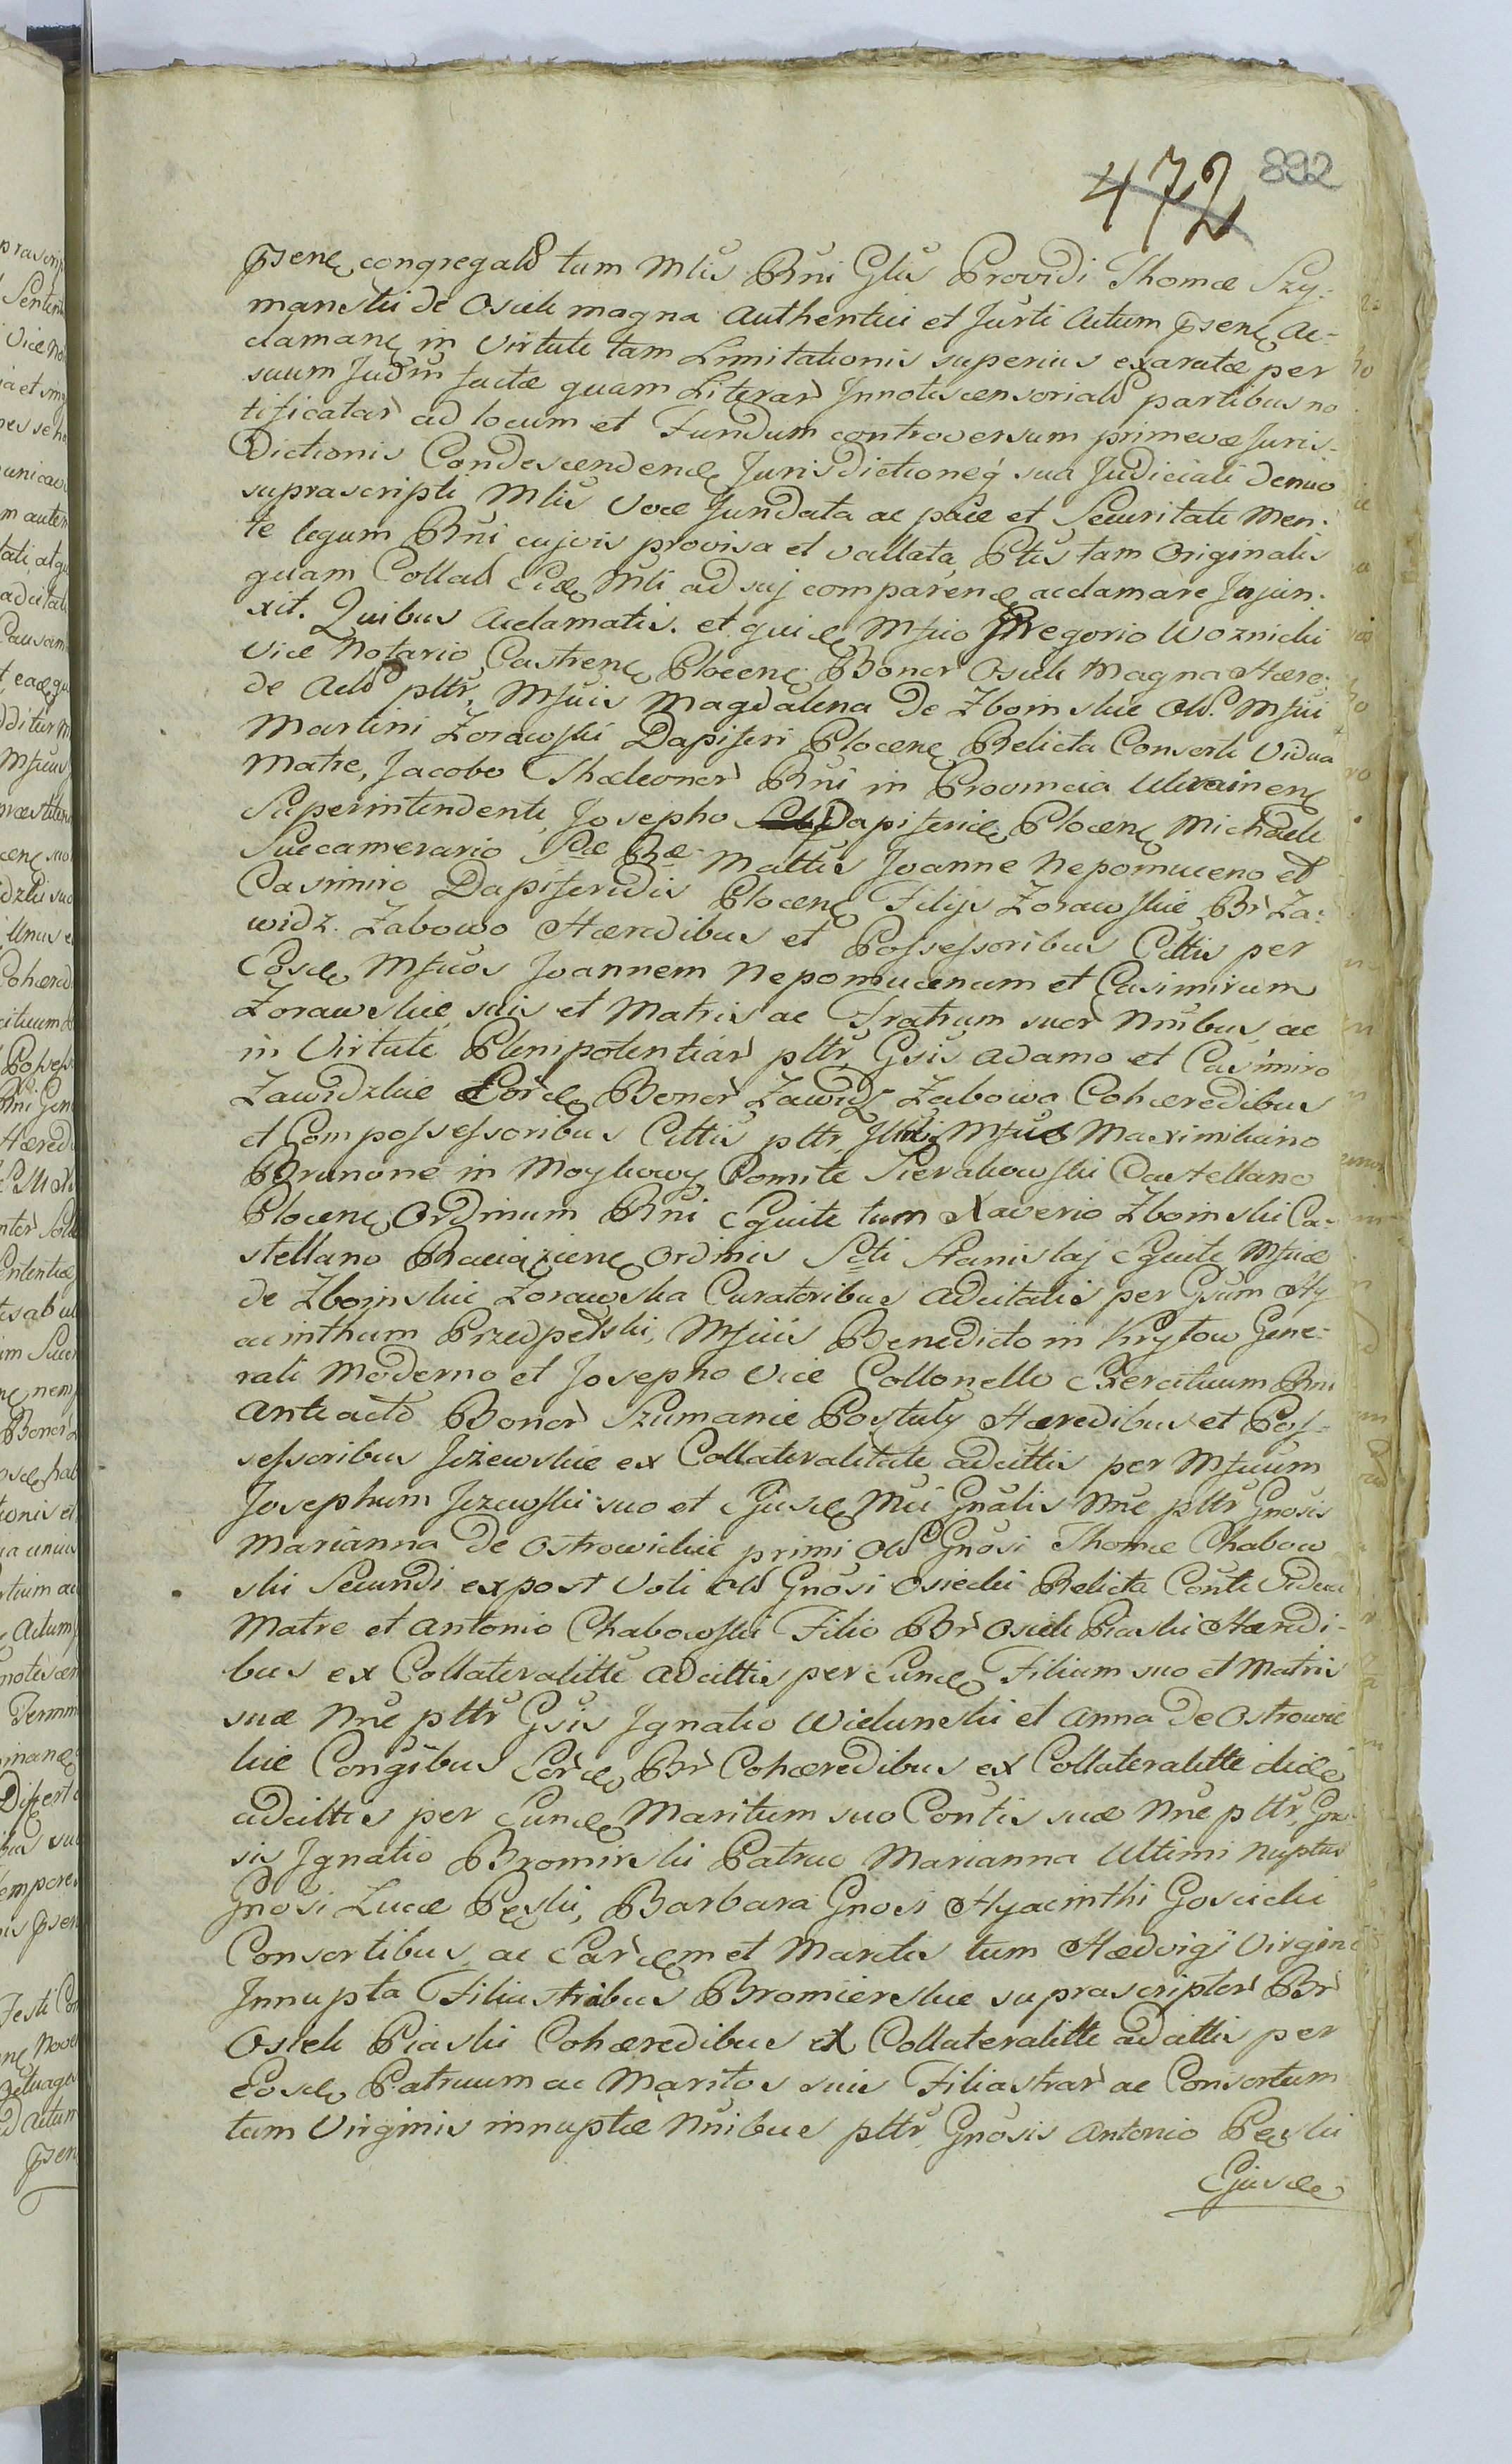 472 892
Psenę congregatō tum Mlis Rni Glis Providi Thomæ Szy:
manski de Osiek magna Authentici et Jurti Actum psenę ac-
clamanę in Virtute tam Limitationis superius exaratæ per
suum Judm factæ quam Literar Innotescensorialō partibus no
tificatar ad locum et Fundum controversum primevæ Juris-
Dictionis Condescendendę Jurisdictioneq sua Judiciali denuo
suprascripti Mlis Voce fundata ac pace et Securitate Men:
te legum Rni cujvis provisa et vallata, Ptes tam Originales
quam Collatō Eidę Mli ad suj comparendę acclamare Injun:
xit. Quibus Acclamatis. et quidę Mfico Gregorio Woznicki
Vice Notario Castrenę Plocenę Bonor Osiek Magna Hære:
de Actō pltr, Mficis Magdalena de Zboinskie Olō. Mfici
Martini Zorawski Dapiferi Plocenę Relicta Consorte Vidua
Matre, Jacobo Thæleonor Rni in Provincia Ukrainenę
Superintendente, Josepho Dapiferidę Plocenę Michaele
Succamerario Sæ Ræ Mattis Joanne Nepomuceno et
Casimiro Dapiferidis Plocenę Filijs Zorawskie Br Za:
widz. Zabowo Hæredibus et Possessoribus Cittis per
Eosdę Mficos Joannem Nepomucenum et Casimirum
Zorawskie suis et Matris ac Fratrum suor Nnibus ac
in Virtute Plenipotentiar pltr, Gsis Adamo et Casimiro
Zawidzkie Eordę Bonor Zawidz Zabowo Cohæredibus
et Compossessoribus Cittis pltr, Illris Mficis Maximiliano
Brunone in Moykowy Comite Sierakowski Castellano
Plocenę Ordinum Rni Equite tum Xaverio Zboinski Ca-
stellano Raciązienę Ordinis Scti Stanislaj Equite Mfica
de Zboinskie Zorawska Curatoribus Adcitatis per Gsum Hy
acinthum Przedpełski, Mficis Benedicto in Kryłow Gene:
rali Moderno et Josepho Vice Collonello Exercituum Rni
Anteactō Bonor Szumanie Pos̨tuły Hæredibus et Pos-
sessoribus Jeżewskie ex Collateralitate adcittis per Mficum
Josephum Jezewski suo et Ejusdę Mci Gnalis Nne pltr Gnosis
Marianna de Ostrowickie primi Olō Gnosi Thomæ Chabow
ski Secundi expost Voti Olō Gnosi Osiecki Relicta Conte Vidua
Matre et Antonio Chabowski Filio Br Osiek Piaski Hæredi-
bus ex Collateralitte Adcittis per Eundę Filium suo et Matris
suæ Nne pltr Gsis Ignatio Wielunski et Anna de Ostrowic
kie Congibus Eordę Br Cohæredibus ex Collateralitte
adcittis per Eundę Maritum suo Contis suæ Nne pltr, Gno
sis Ignatio Bromirski Patruo Marianna Ultimi Nuptus
Gnosi Lucæ Pęski, Barbara Gnosi Hyacinthi Goscicki
Consortibus ac Eardęm et Maritis tum Hedvigi Virgine
Innupta Filiastrabus Bromierskie suprascriptor Br
Osiek Piaski Cohæredibus ex Collateralitte adcittis per
Eosdę Patruum ac Maritos suis Filiastrar ac Consortum
tum Virginis innuptæ Nnibus pltr Gnosis Antonio Pęski
Ejusdę